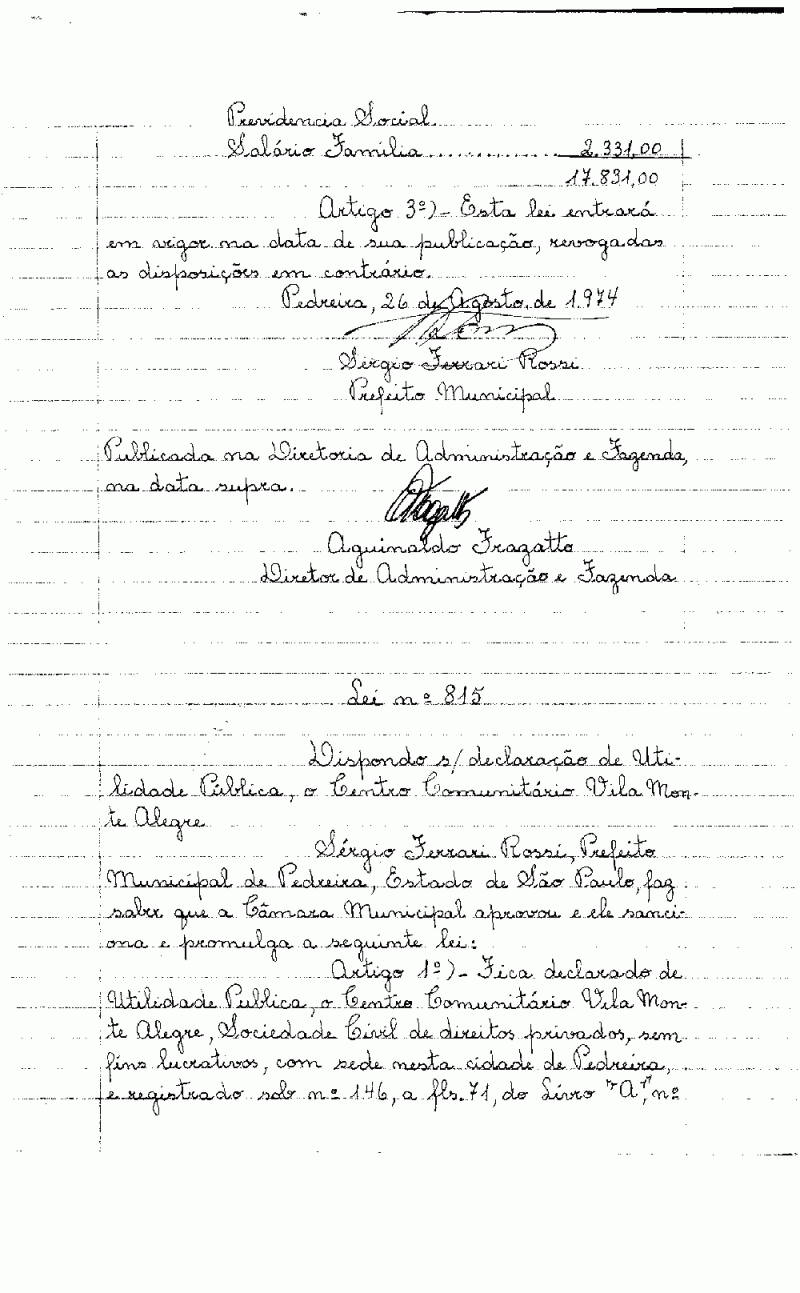 Previdencia Social
Salário Família ............... 2.331,00
17.831,00
Artigo 3º)- Esta lei entrará
em vigor na data de sua publicação, revogadas
as disposições em contrário.
Pedreira, 26 de Agosto de 1.974
Sérgio Ferrari Rossi
Prefeito Municipal
Publicada na Diretoria de Administração e Fazenda,
na data supra.
Aguinaldo Fragatto
Diretor de Administração e Fazenda
Lei nº 815
Dispondo s/ declaração de Uti-
lidade Pública, o Centro Comunitário Vila Mon-
te Alegre
Sérgio Ferrari Rossi, Prefeito
Municipal de Pedreira, Estado de São Paulo, faz
saber que a Câmara Municipal aprovou e ele sanci-
ona e promulga a seguinte lei:
Artigo 1º)- Fica declarado de
Utilidade Publica, o Centro Comunitário Vila Mon-
te Alegre, Sociedade Civil de direitos privados, sem
fins lucrativos, com sede nesta cidade de Pedreira,
e registrado sob nº 146, a fls. 71, do Livro "A", nº